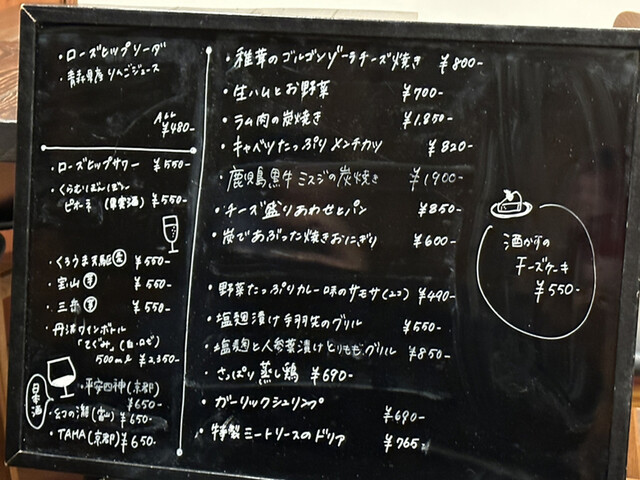 ・ローズヒップソーダ
・青森県産りんごジュース
ALL
¥480-
・ローズヒップサワー ¥550-
・くらむぼんぼん
ピオーネ (果実酒) ¥550-
・くろうま ¥550-
・宝山 芋 ¥550-
・三岳 芋 ¥550-
・丹波ワインボトル
「てぐみ」(白・ロゼ)
500ml ¥2,350-
日本酒
・平安四神(京都)
¥650-
¥650-
・TAMA(京都) ¥650-
・椎茸のゴルゴンゾーラチーズ焼き ¥800-
・生ハムとお野菜 ¥700-
・ラム肉の炭焼き ¥1,850-
・キャベツたっぷりメンチカツ ¥820-
・鹿児島黒牛 ミスジの炭焼き ¥1900-
・チーズ盛りあわせとパン ¥850-
・炭であぶった焼きおにぎり ¥600-
・野菜たっぷりカレー味のサモサ(2コ) ¥490-
・塩麹漬け手羽先のグリル ¥550-
・塩麹と人参葉漬けとりももグリル ¥850-
・さっぱり蒸し鶏 ¥690-
・ガーリックシュリンプ ¥690-
・特製ミートソースのドリア ¥765-
酒かすの
チーズケーキ
¥550-